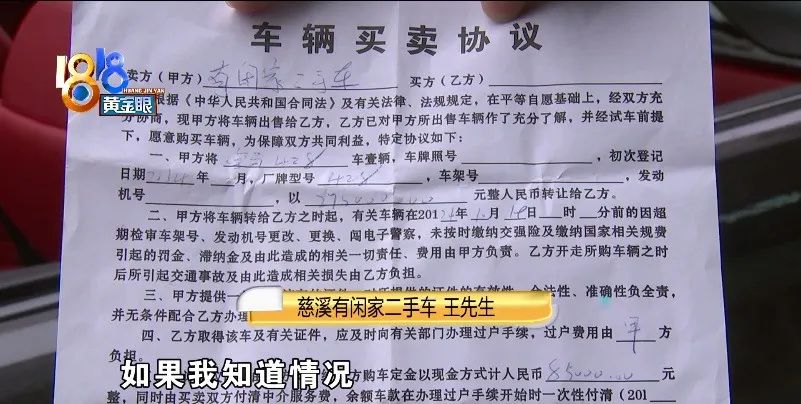 车辆买卖协议
1818
HUANG JIN YAN
黄金眼
卖方（甲方）有闲家二手车 买方（乙方）
根据《中华人民共和国合同法》及有关法律、法规规定，在平等自愿基础上，经双方充
分协商，现甲方将车辆出售给乙方，乙方已对甲方所出售车辆作了充分了解，并经试车前提
下，愿意购买车辆，为保障双方共同利益，特定协议如下：
一、甲方将 428 车壹辆，车牌照号 ，初次登记
日期2014年 月，厂牌型号 428 ，车架号 ，发动
机号 ，以 元整人民币转让给乙方。
二、甲方将车辆转给乙方之时起，有关车辆在201 年 月 日 时 分前的因超
期检审车架号、发动机号更改、更换、闯电子警察，未按时缴纳交强险及缴纳国家相关规费
引起的罚金、滞纳金及由此造成的相关一切责任、费用由甲方负责。乙方开走所购车辆之时
后所引起交通事故及由此造成相关损失由乙方负担。
三、甲方提供一 合法性、准确性负全责，
并无条件配合乙方办理
慈溪有闲家二手车 王先生
四、乙方取得该车及有关证件，应及时向有关部门办理过户手续，过户费用由 甲 方
负担。
方购车定金以现金方式计人民币 85000.00 元
整，同时由买卖双方付清中介服务费，余额车款在办理过户手续开始时一次性付清（201
如果我知道情况